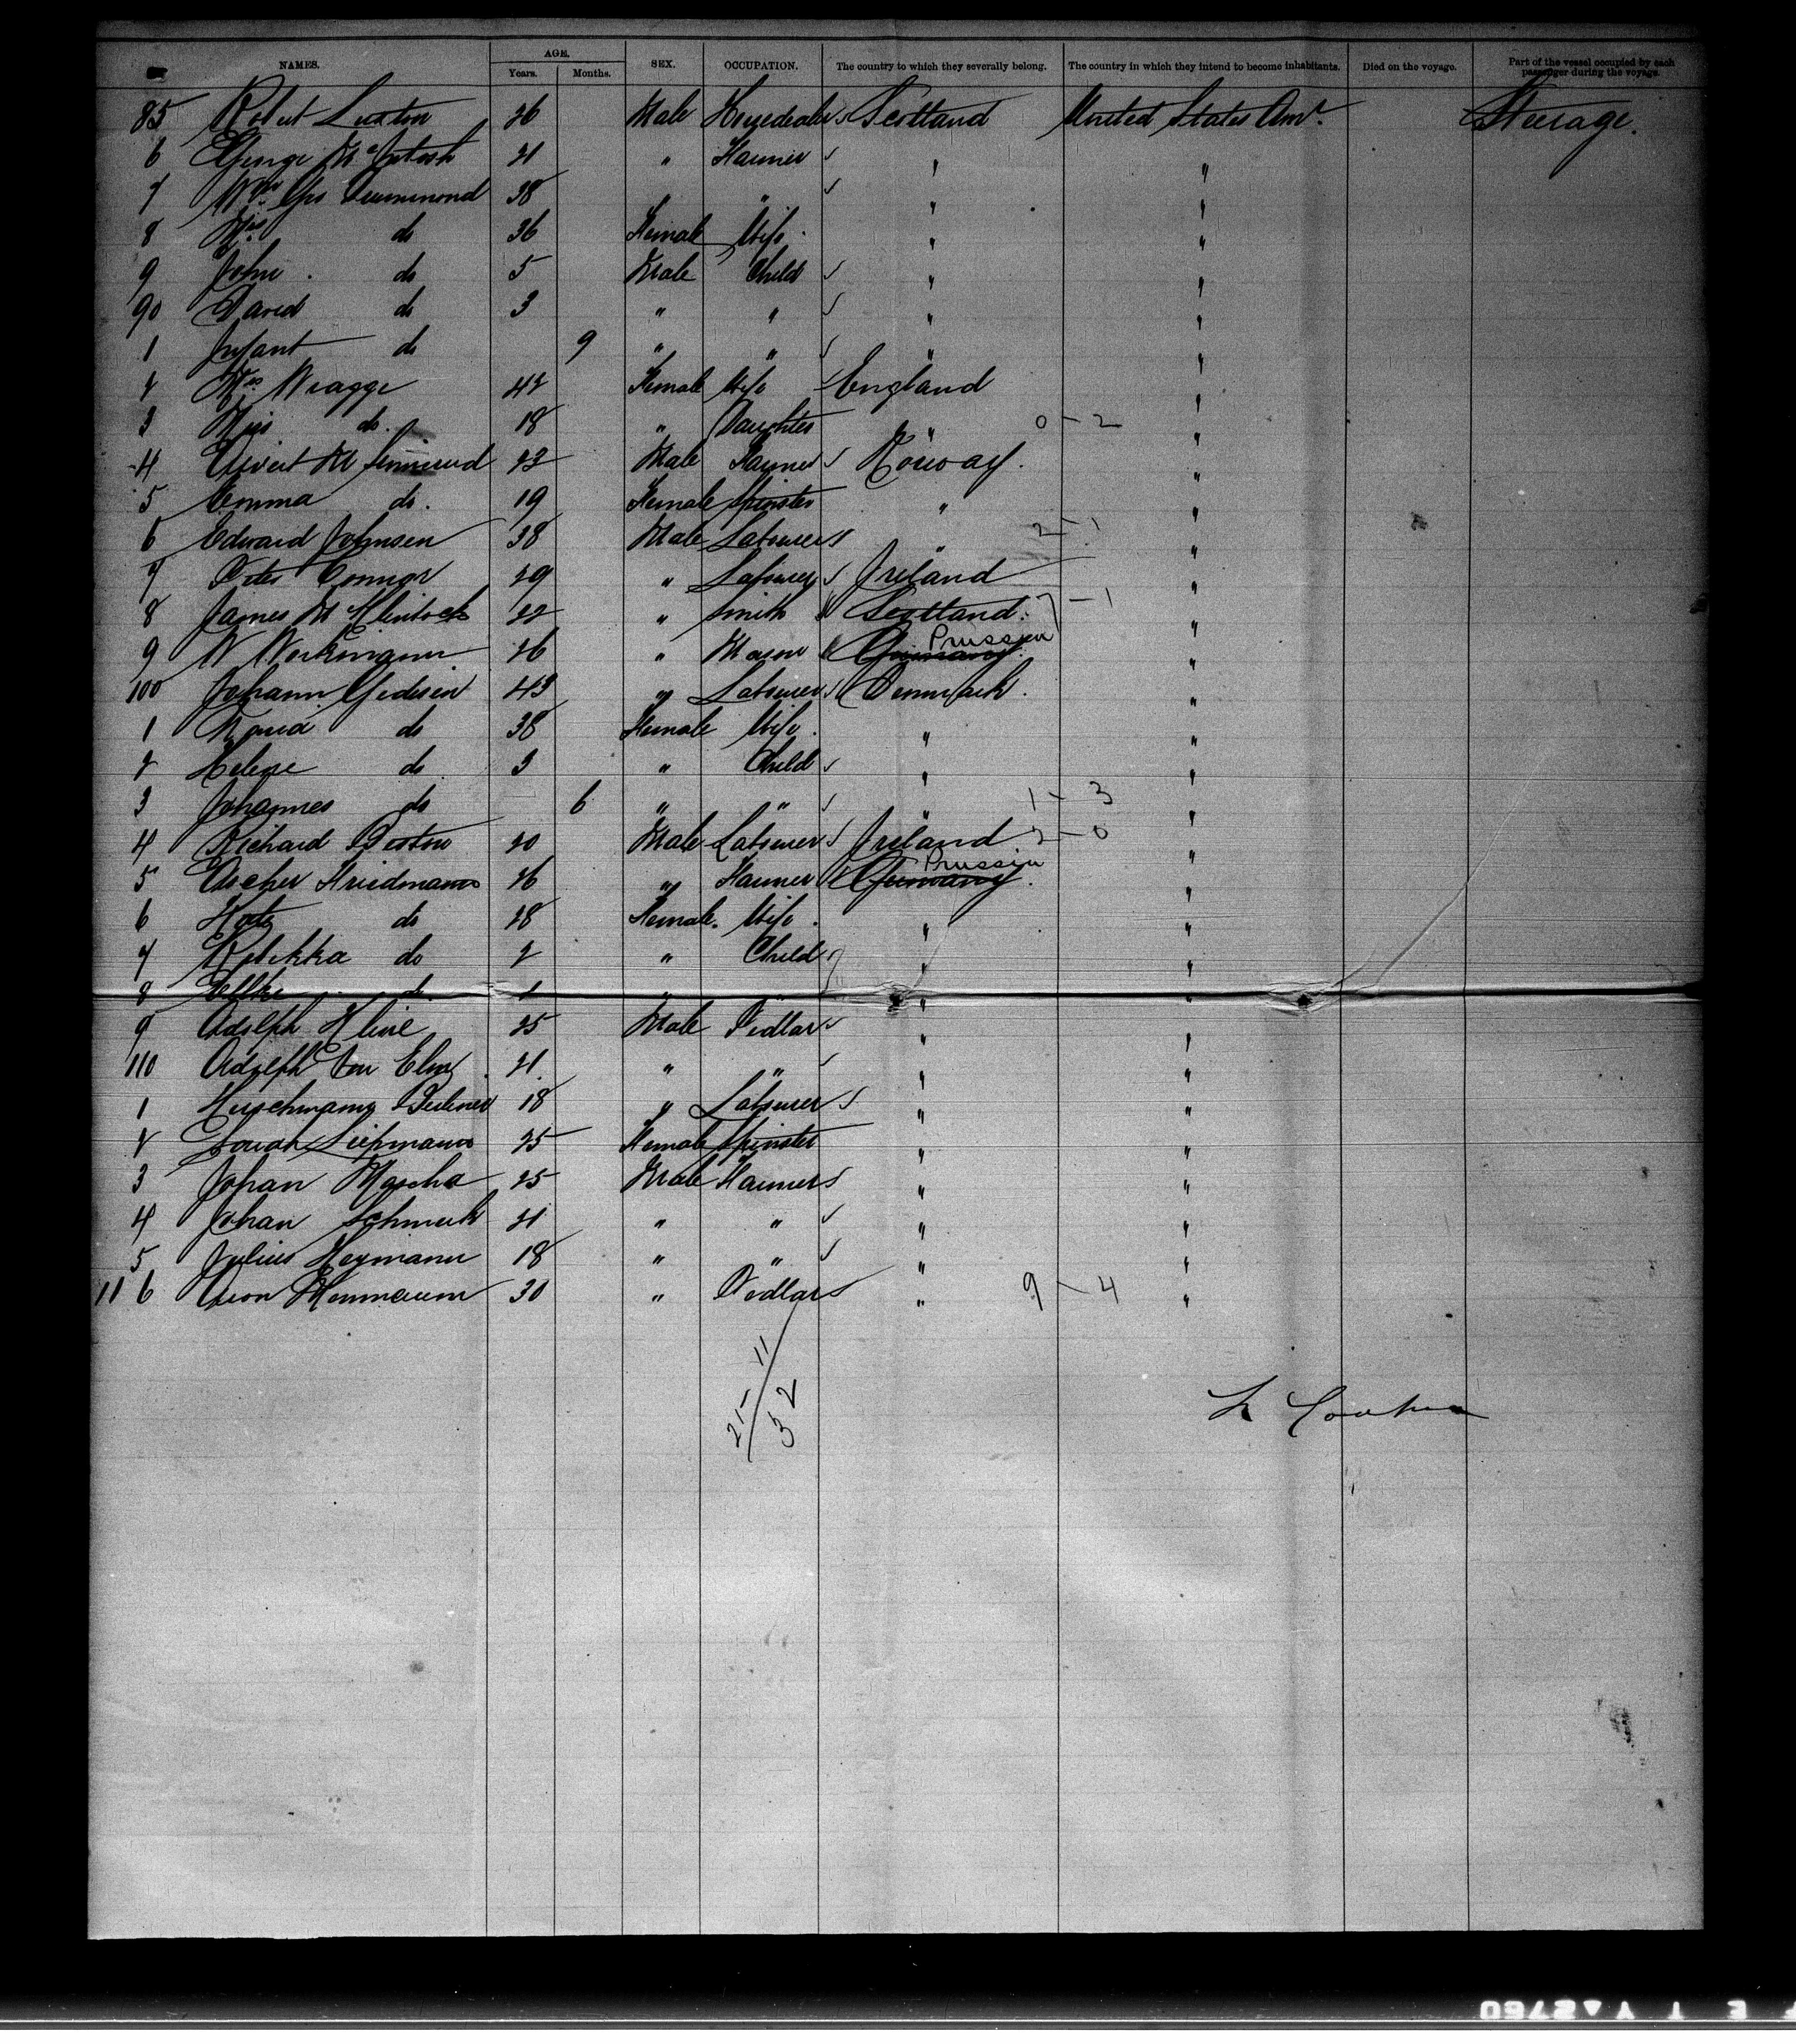 NAMES. AGE. SEX. OCCUPATION. The country to which they severally belong. The country in which they intend to become inhabitants. Died on the voyage. Part of the vessel occupied by each passenger during the voyage.
Years. Months.
85 Robert 26 Male Scotland United States Am. Steerage.
6 George McIntosh 21 " Farmer " "
7 Wm Drummond 38 " " " "
8 Mrs do 36 Female Wife " "
9 John do 5 Male Child " "
90 David do 3 " " " "
1 Infant do 9 " " " "
2 Mrs Wragge 42 Female Wife England "
3 Miss do. 18 " Daughter " 0 - 2 "
4 23 Male Farmer Norway. "
5 Emma do. 19 Female Spinster " "
6 Edward Johnsen 38 Male Labourer " 2 - 1 "
7 Peter Connor 29 " Labourer Ireland "
8 James McClintock 22 " Smith Scotland. - 1 "
9 W Workmann 26 " Mason Germany Prussia "
100 Johann 43 " Labourer Denmark. "
1 Maria do 38 Female Wife. " "
2 Helene do 3 " Child " "
3 Johannes do 6 " " " 1 - 3 "
4 Richard 20 Male Labourer Ireland 2 - 0 "
5 Ascher Friedmann 26 " Farmer Germany Prussia "
6 do 28 Female. Wife. " "
7 Rebekka do 2 " Child " "
8 do. 1 " " "
9 Adolph Kline 25 Male Pedlar " "
110 Adolph 21. " " " "
1 18 " Labourer " "
2 Sarah Liepmann 25 Female Spinster " "
3 Johan Mascha 25 Male Farmer " "
4 Johan 21 " " " "
5 Julius Heymann 18 " " " "
116 30 " Pedlar " 9 - 4 "
21 11
32